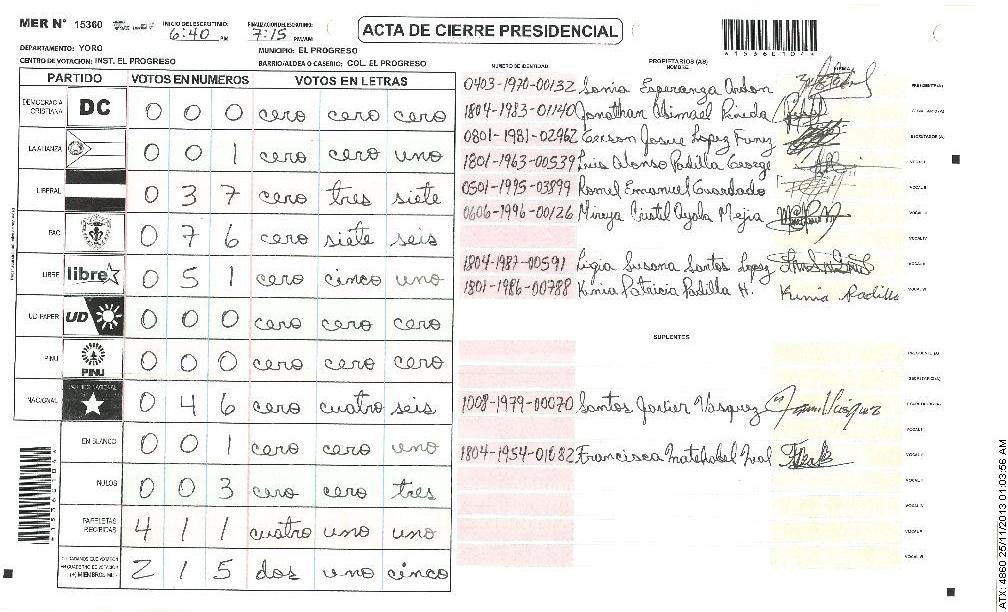 MER N° 15360
INICIO DEL ESCRUTINIO: 6:40 PM
FINALIZACION DEL ESCRUTINIO: 7:15 PM/AM
ACTA DE CIERRE PRESIDENCIAL
DEPARTAMENTO: YORO
MUNICIPIO: EL PROGRESO
CENTRO DE VOTACION: INST. EL PROGRESO
BARRIO/ALDEA O CASERIO: COL. EL PROGRESO
PARTIDO VOTOS EN NUMEROS VOTOS EN LETRAS
DEMOCRACIA CRISTIANA DC 0 0 0 cero cero cero
LA ALIANZA 0 0 1 cero cero uno
LIBERAL 0 3 7 cero tres siete
PAC 0 7 6 cero siete seis
LIBRE libre 0 5 1 cero cinco uno
UD-FAPER UD 0 0 0 cero cero cero
PINU PINU 0 0 0 cero cero cero
NACIONAL PARTIDO NACIONAL 0 4 6 cero cuatro seis
EN BLANCO 0 0 1 cero cero uno
NULOS 0 0 3 cero cero tres
PAPELETAS RECIBIDAS 4 1 1 cuatro uno uno
CIUDADANOS QUE VOTARON EN CUADERNO DE VOTACION (+) MIEMBROS MER 2 1 5 dos uno cinco
NUMERO DE IDENTIDAD
PROPIETARIOS (AS)
NOMBRE
FIRMA
0403-1970-00132 Sonia Esperanza PRESIDENTE(A)
1804-1983-01140 Jonathan Abimael Pineda
0801-1981-02962 Gerson Josue Lopez Funez SECRETARIO (A)
1801-1963-00539 Luis Alonso Padilla George VOCAL I
0501-1995-03899 Romel Emanuel Guardado VOCAL II
0606-1996-00126 Mireya Cristel Ayala Mejia VOCAL III
VOCAL IV
1804-1987-00591 Ligia Susana Santos Lopez VOCAL V
1801-1986-00788 Kenia Patricia Padilla H. Kenia Padilla VOCAL VI
SUPLENTES
PRESIDENTE (A)
SECRETARIO (A)
1008-1979-00070 Santos Javier Vasquez
VOCAL I
1804-1954-01682 Francisca VOCAL II
VOCAL III
VOCAL IV
VOCAL V
VOCAL VI
ATX: 4860 25/11/2013 01:03:56 AM